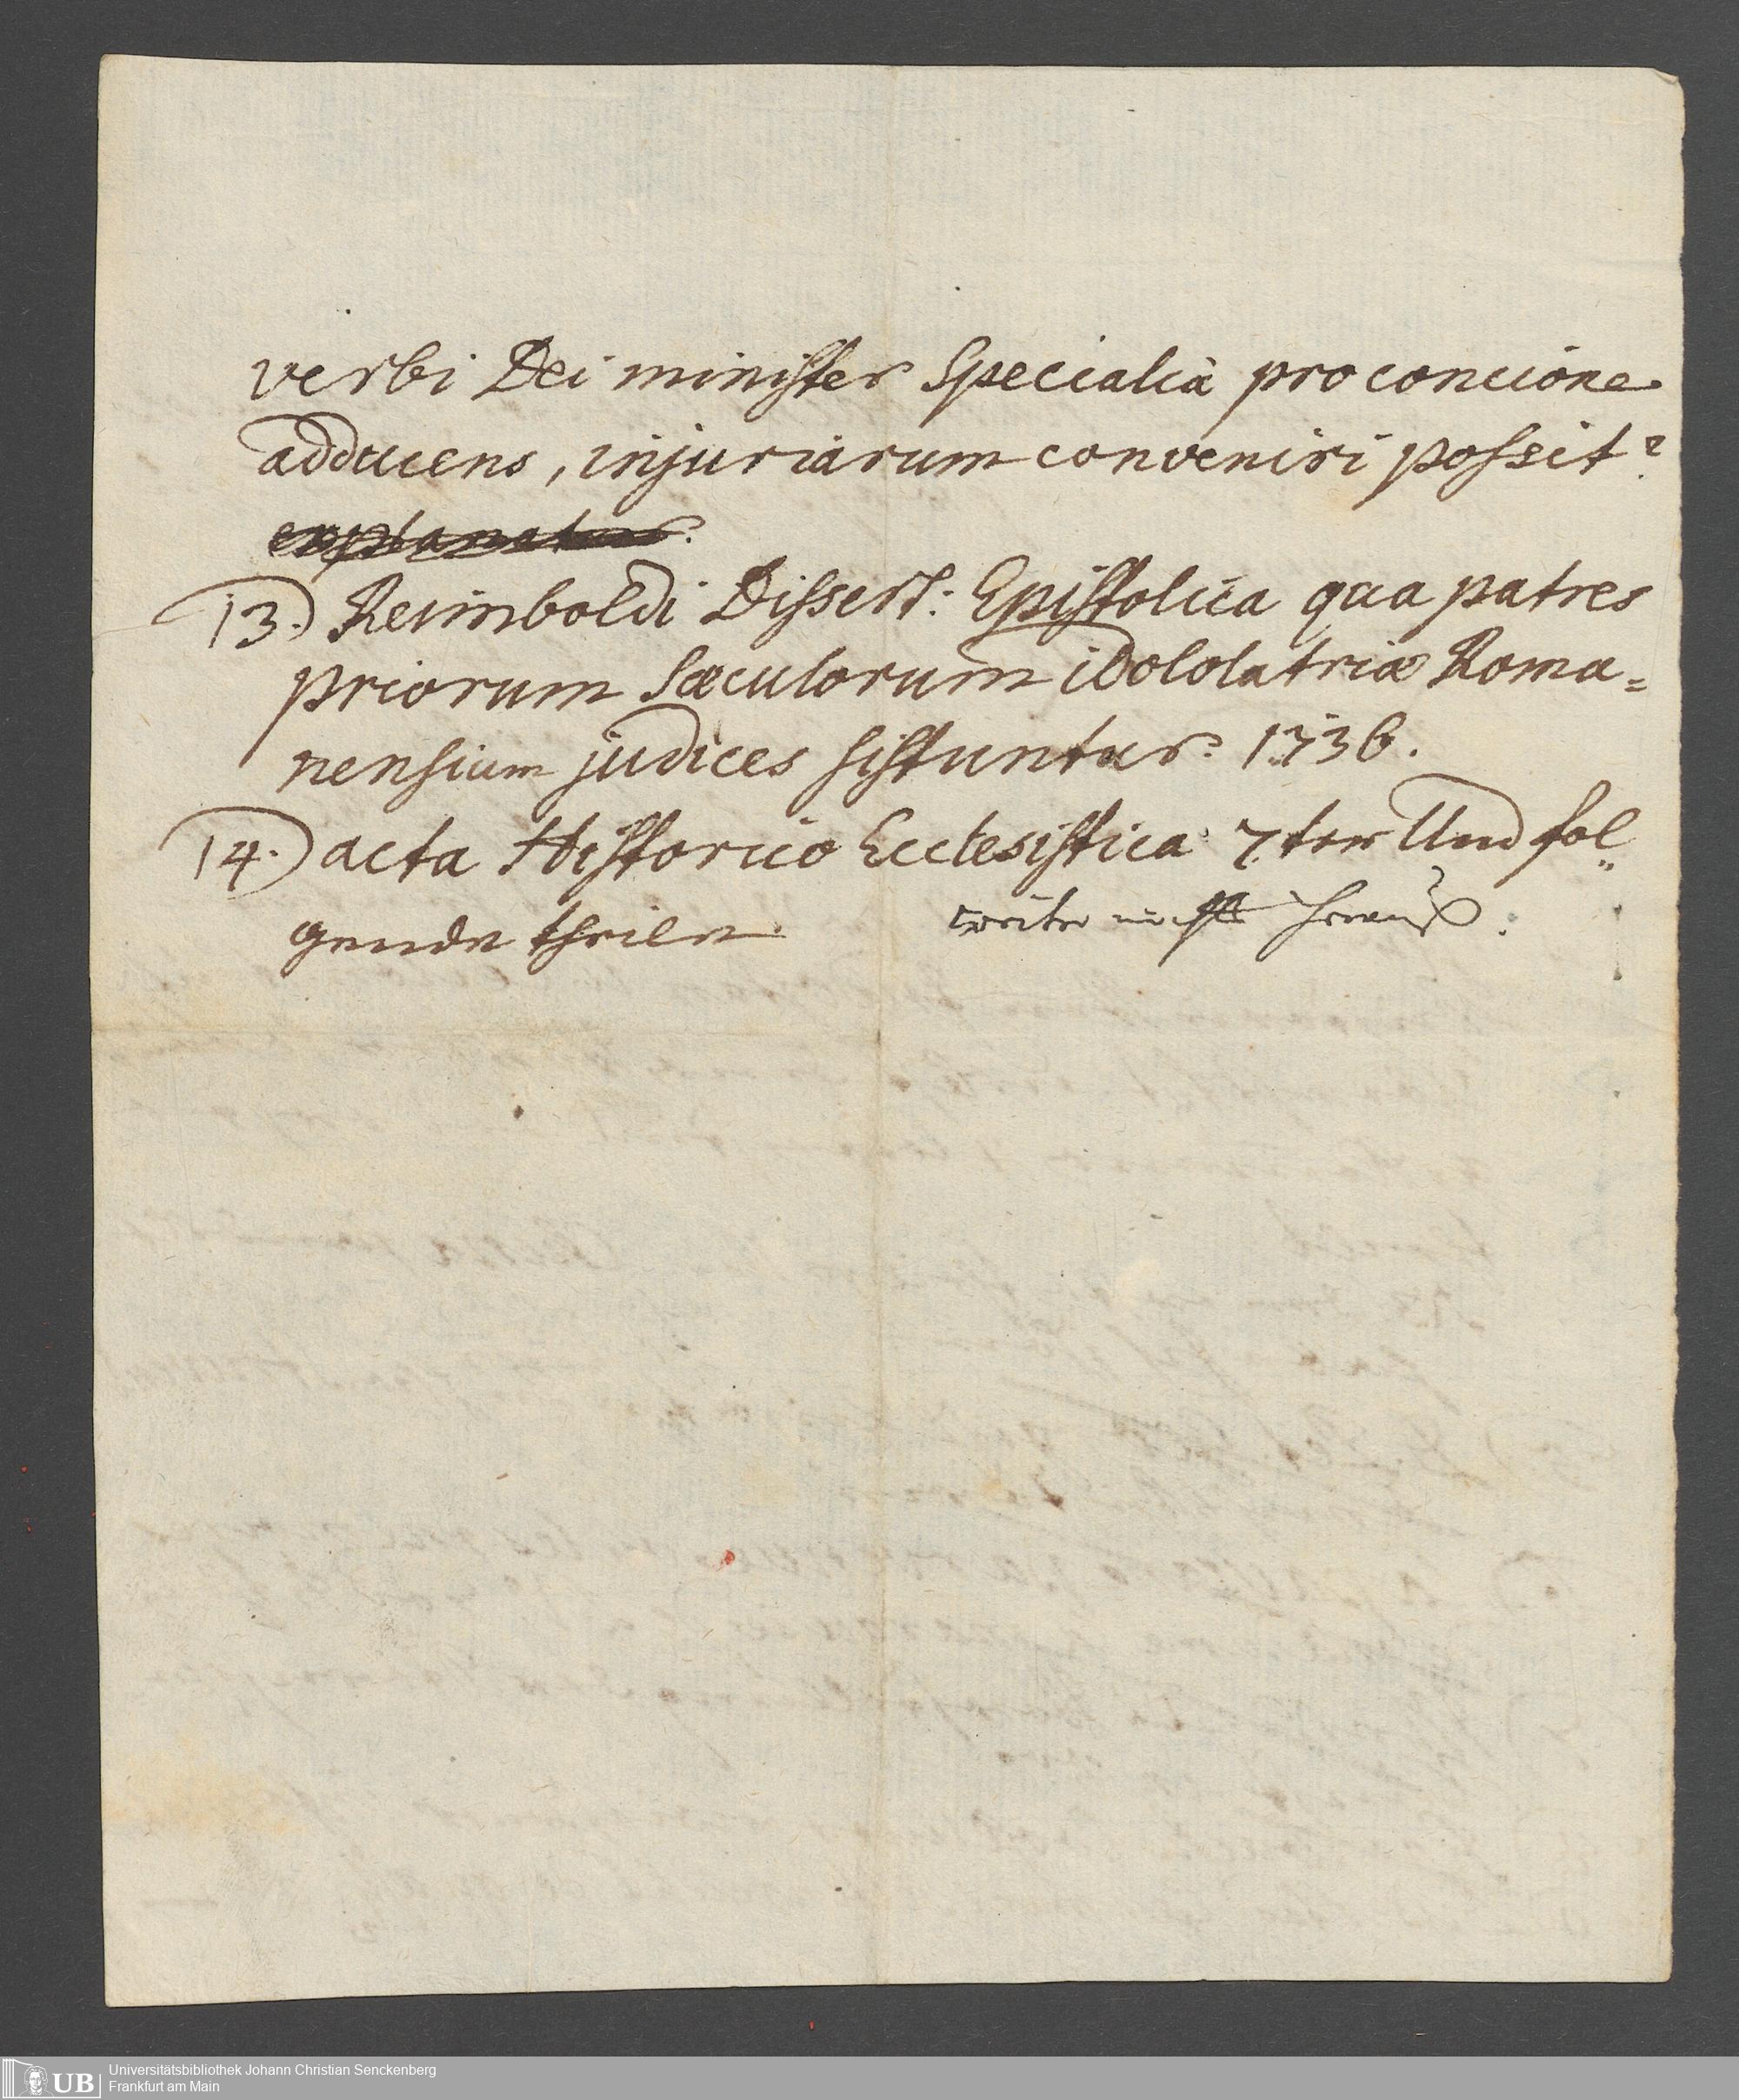 verbi Dei minister Specialia pro concione
adducens, injuriarum conveniri possit?
explanatur.
13.) Reimboldi Dissert: Epistolica qua patres
priorum Sæculorum idololatriæ Roma=
nensium judices sistuntur. 1736.
14.) acta Historico Ecclesistica 7ter Und fol„
gende theile.
weiter nicht heraus.
UB Universitätsbibliothek Johann Christian Senckenberg
Frankfurt am Main